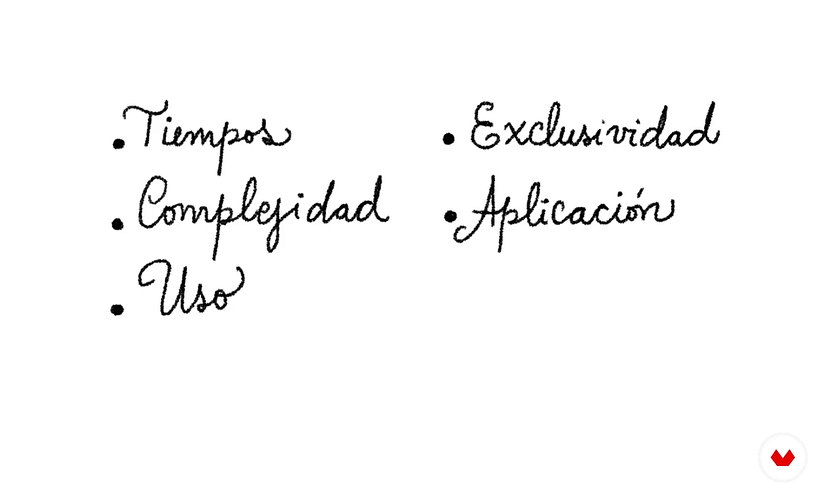 • Tiempos
• Complejidad
• Uso
• Exclusividad
• Aplicación